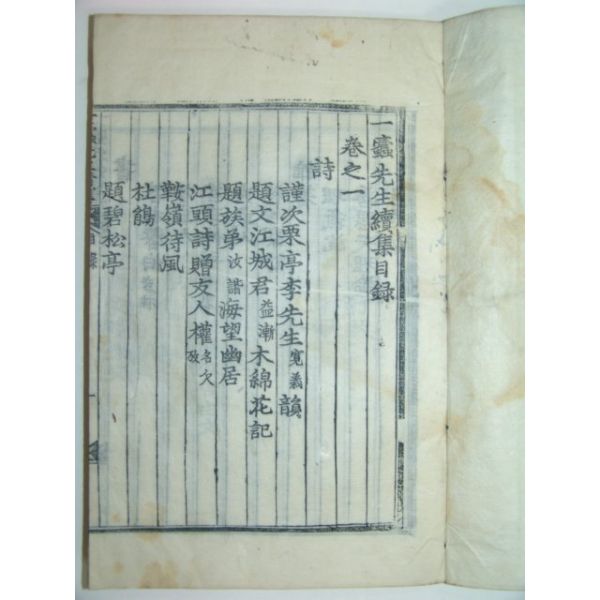 一蠹先生續集目錄
卷之一
詩
謹次栗亭李先生寬義韻
題文江城君益漸木綿花記
題族弟汝諧海望幽居
江頭詩贈友人權名欠攷
鞍嶺待風
杜鵑
題碧松亭